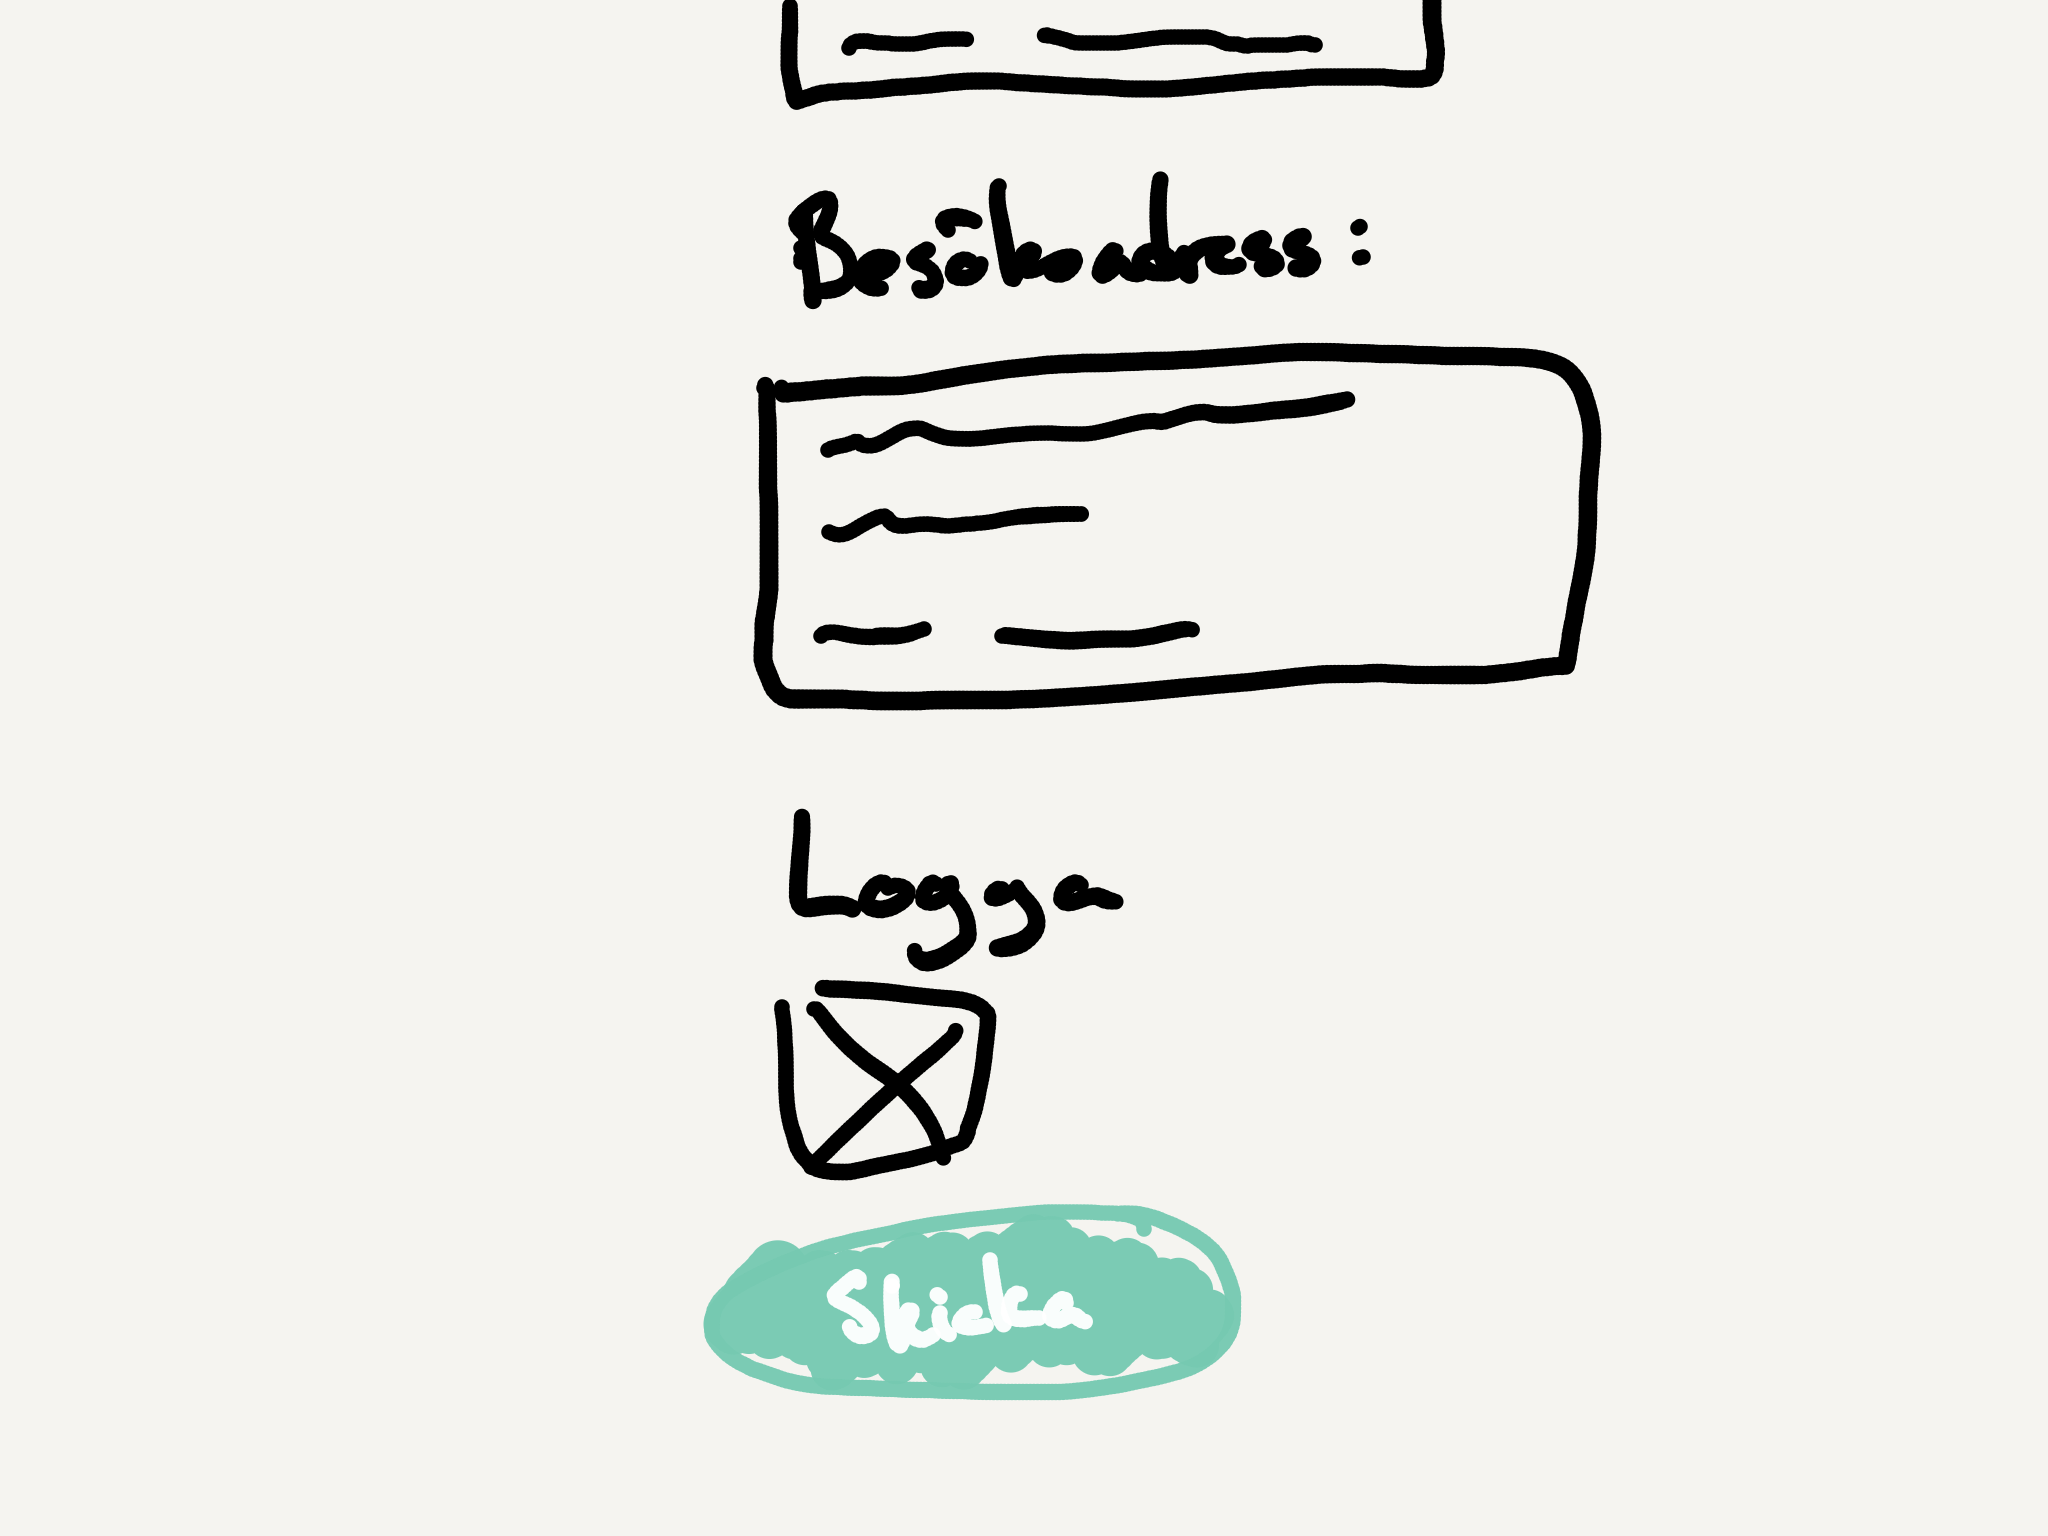 Besökoadress:
Logga
Skicka